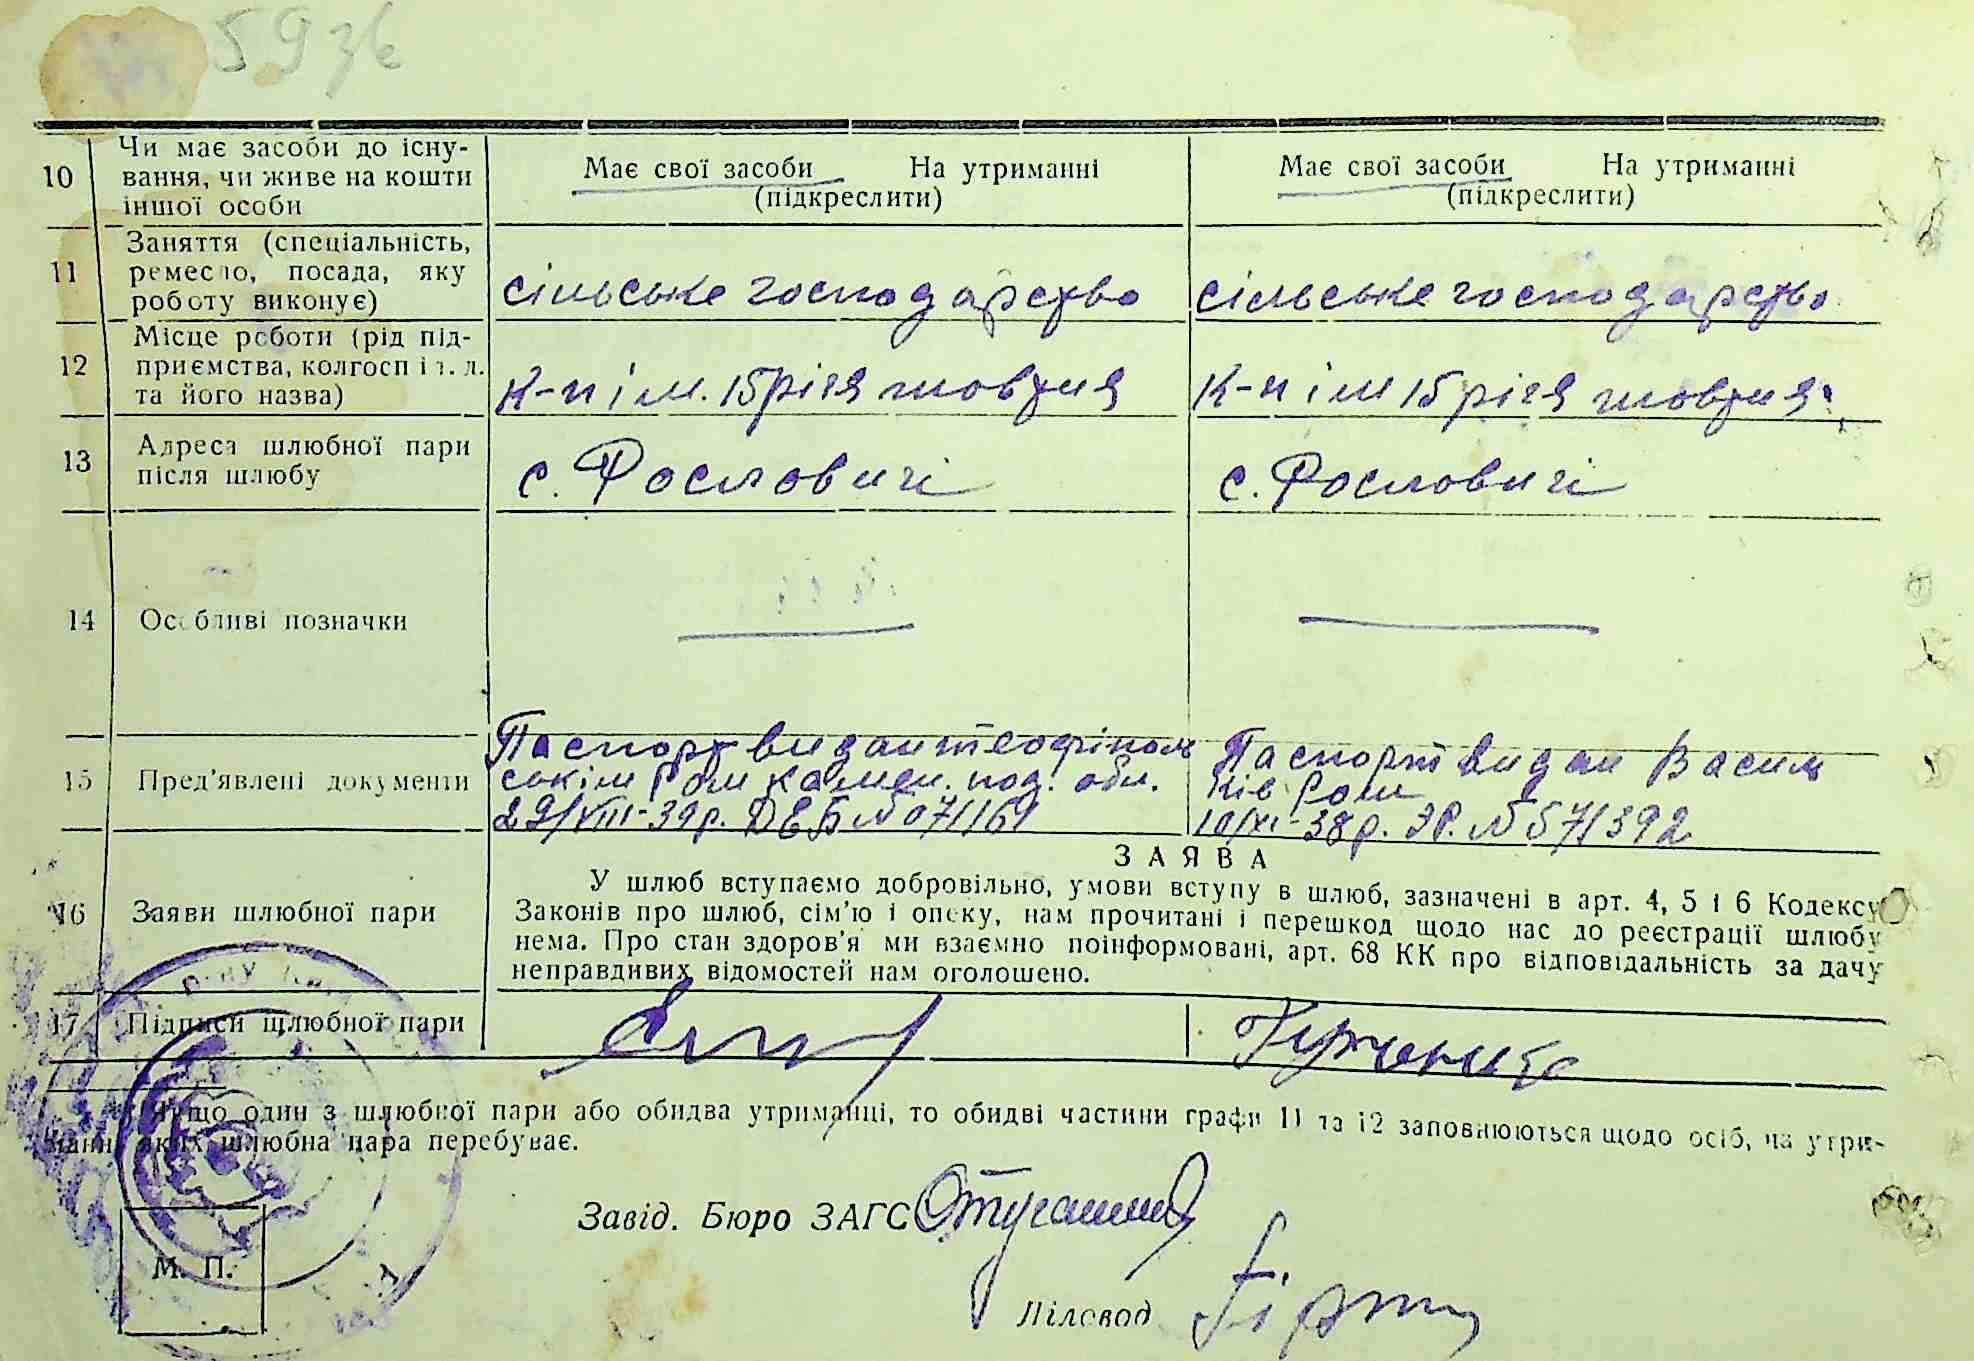 59 зв
10 Чи має засоби до існу-
вання, чи живе на кошти
іншої особи
Має свої засоби На утриманні
(підкреслити)
Має свої засоби На утриманні
(підкреслити)
11 Заняття (спеціальність,
ремесло, посада, яку
роботу виконує)
сільське господарство
сільське господарство
12 Місце роботи (рід під-
приємства, колгосп і т. д.
та його назва)
К-п ім. 15 річя жовтня
К-п ім 15 річя жовтня
13 Адреса шлюбної пари
після шлюбу
с. Рословичі
с. Рословичі
14 Особливі позначки
15 Пред'явлені документи
Паспорт видан теофіполь
ськім Ром камен. под. обл.
29/VIII-39р. ДЕБ № 071161
Паспорт видан Васил
ків Ром
10/XI-38р. ЭР. № 571392
ЗАЯВА
16 Заяви шлюбної пари
У шлюб вступаємо добровільно, умови вступу в шлюб, зазначені в арт. 4, 5 і 6 Кодексу
Законів про шлюб, сім'ю і опеку, нам прочитані і перешкод щодо нас до реєстрації шлюбу
нема. Про стан здоров'я ми взаємно поінформовані, арт. 68 КК про відповідальність за дачу
неправдивих відомостей нам оголошено.
17 Підписи шлюбної пари
Якщо один з шлюбної пари або обидва утриманці, то обидві частини графи 11 та 12 заповнюються щодо осіб, на утри-
манні яких шлюбна пара перебуває.
Завід. Бюро ЗАГС
М. П.
Діловод